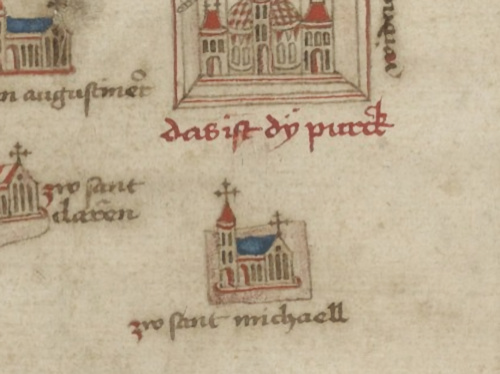 n augustiner
das ist dÿ purck
zw sant
claren
zw sant michaell